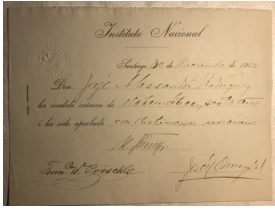 Instituto Nacional
Santiago, de Diciembre de 1912
Don Jorge Alessandri Rodríguez
ha rendido exámen de Matemáticas, sesto año
i ha sido aprobado con distincion unánime
Fran. Co. W. Pröschle